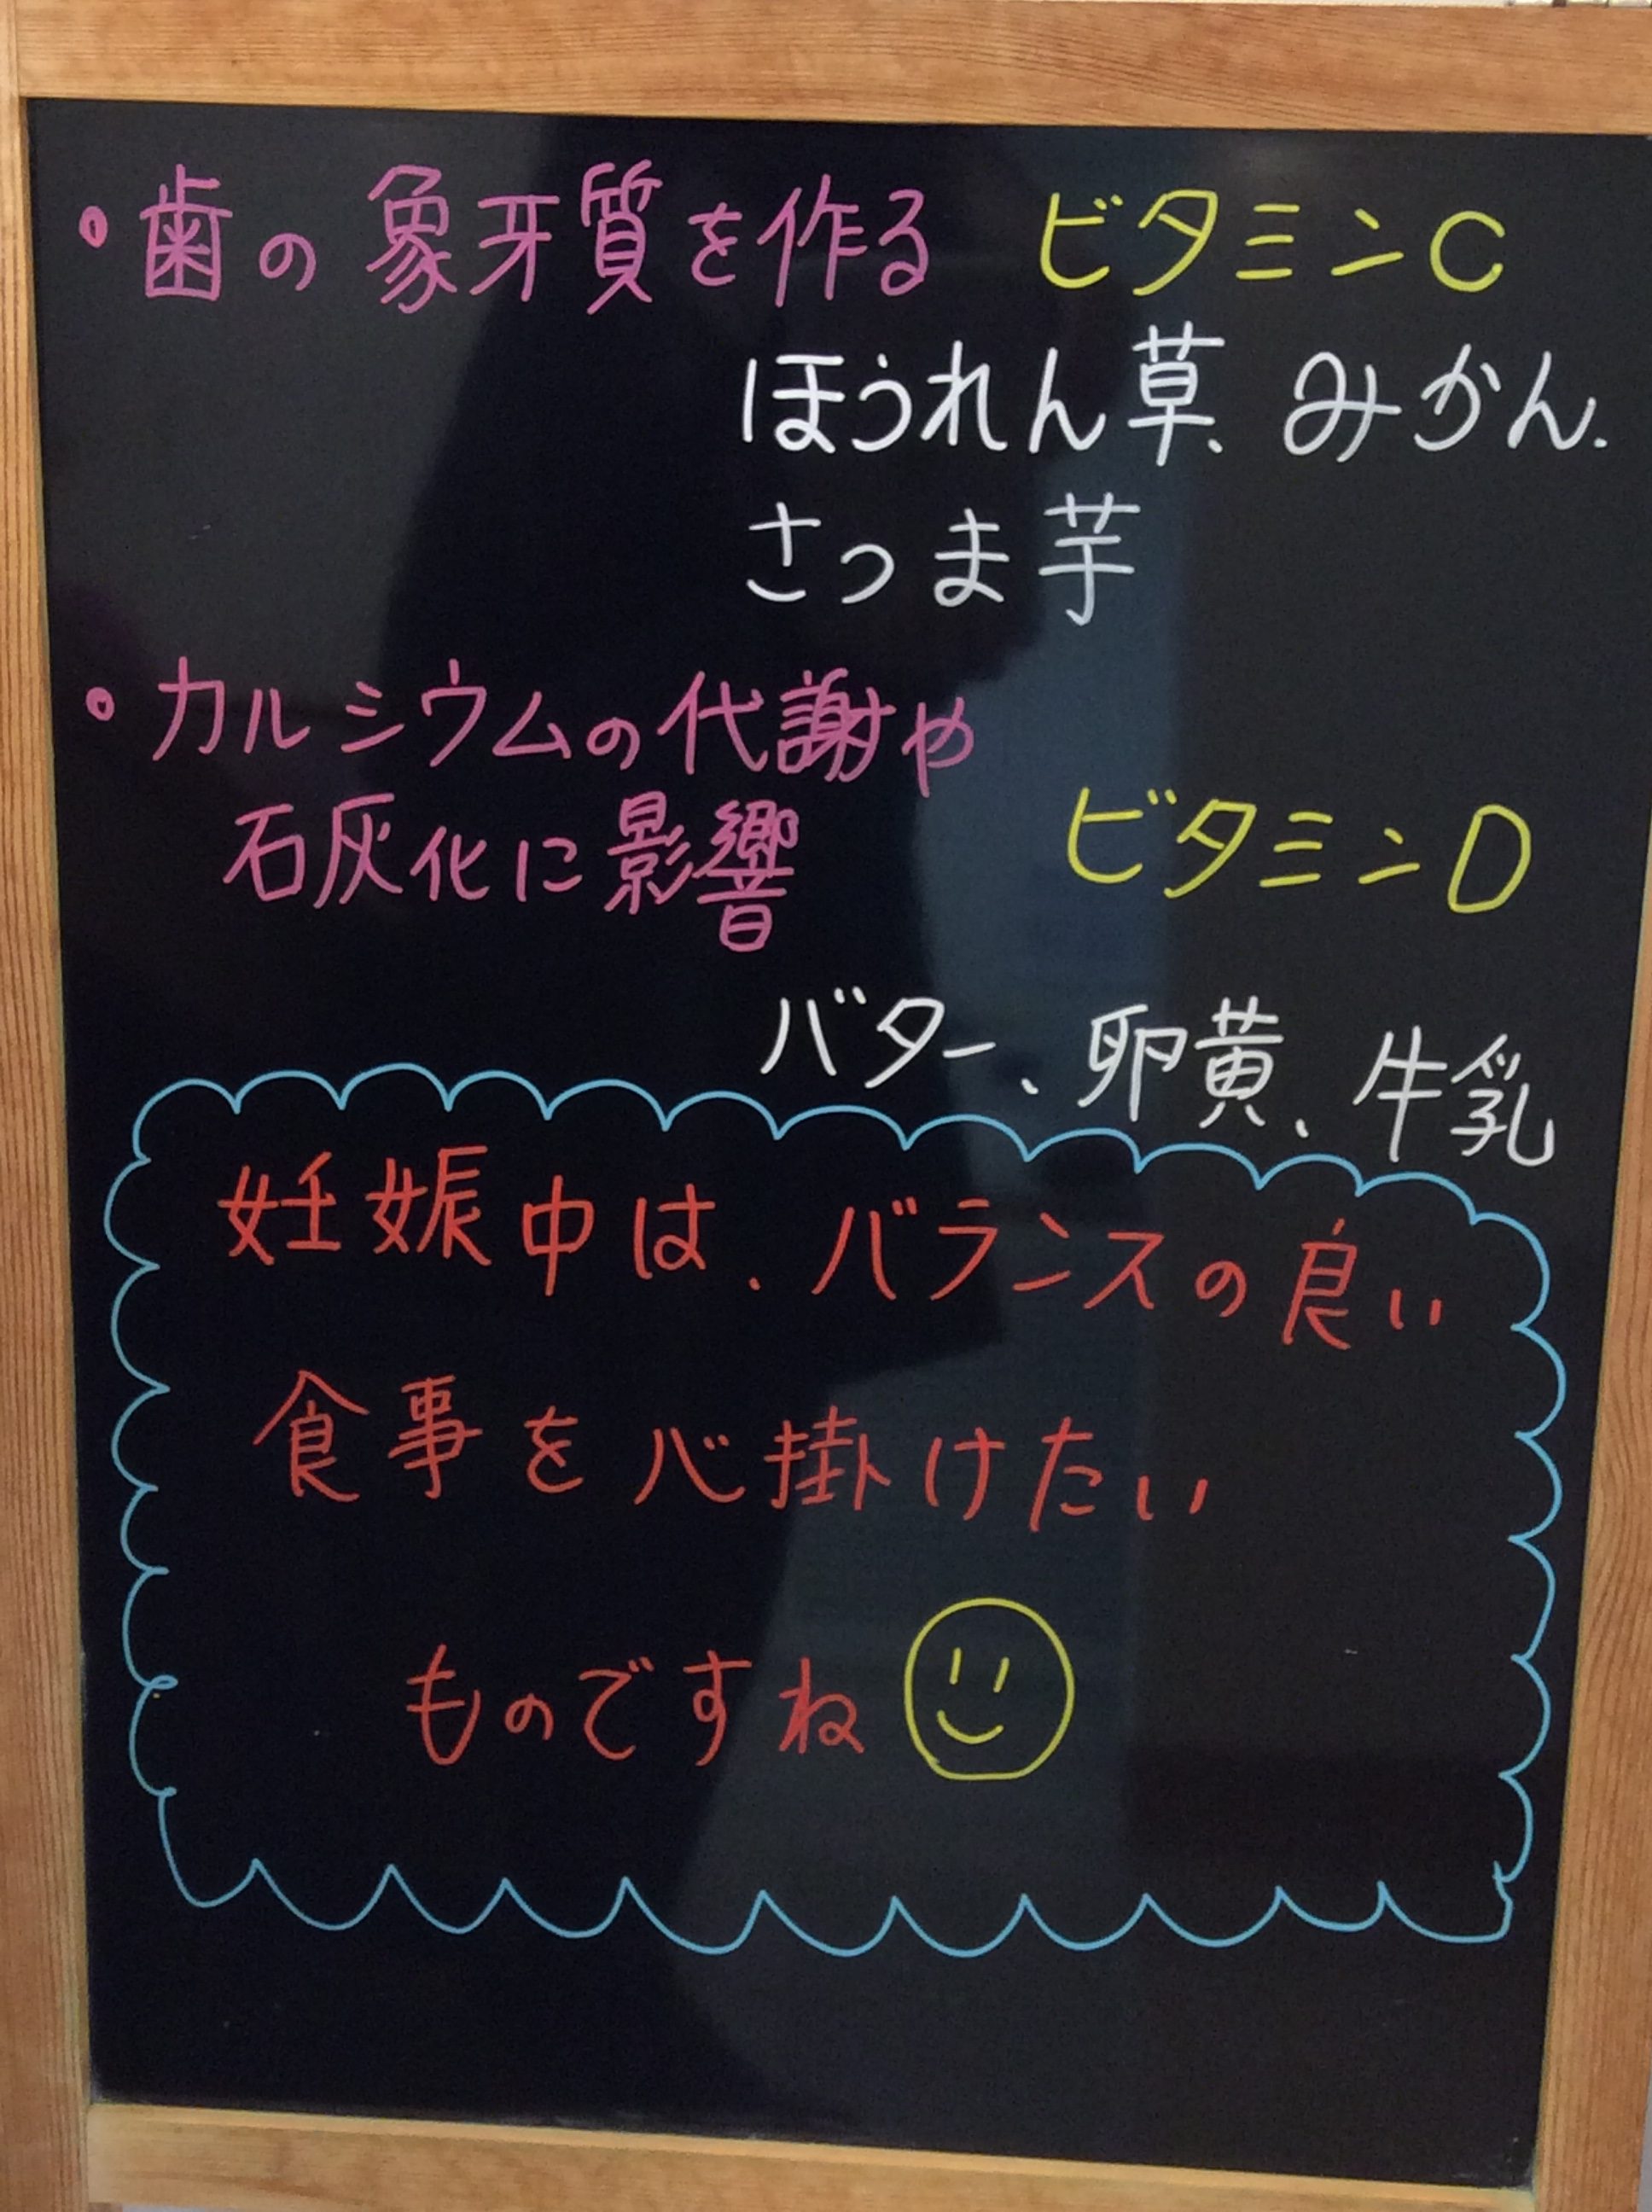 ・歯の象牙質を作る ビタミンC
ほうれん草、みかん、
さつま芋
・カルシウムの代謝や
石灰化に影響 ビタミンD
バター、卵黄、牛乳
妊娠中は、バランスの良い
食事を心掛けたい
ものですね